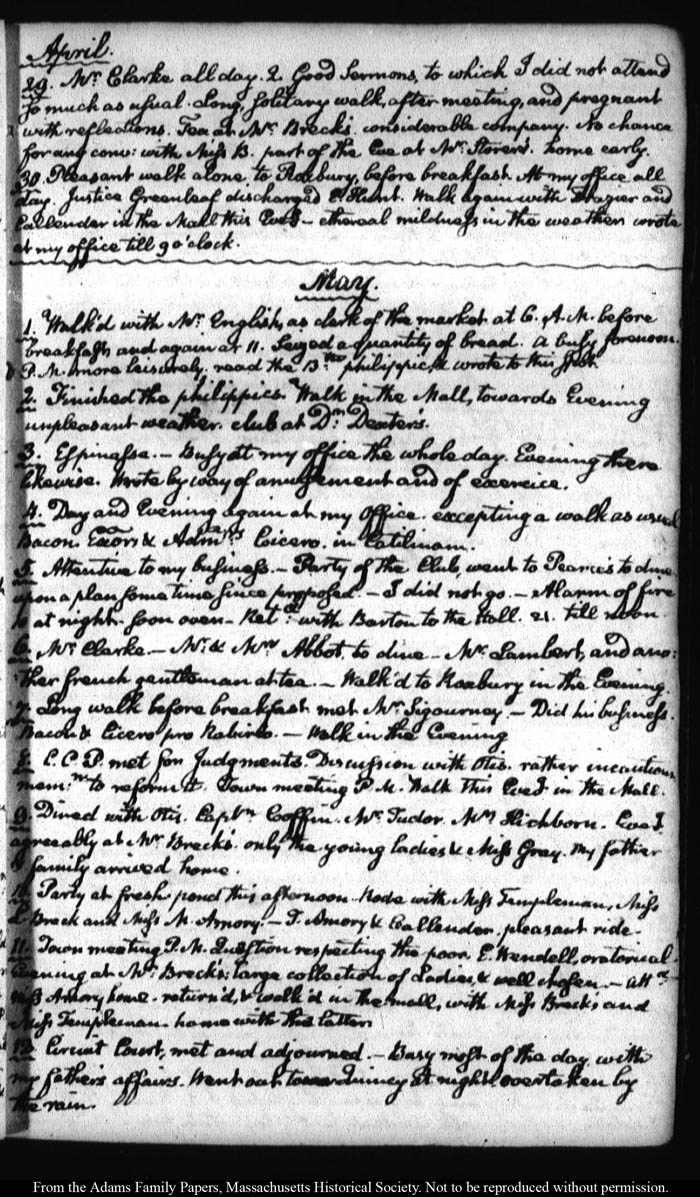 April.
29. Mr. Clarke all day. 2. Good Sermons, to which I did not attend
so much as usual. Long, solitary walk, after meeting, and pregnant
with reflections. Tea at Mr. Breck's. considerable company. No chance
for any conv: with Miss B. part of the Eve at Mr. Storer's. home early.
30. Pleasant walk alone to Roxbury, before breakfast. At my office all
day. Justice Greenleaf discharged E. Hunt. Walk again with Frazier and
Callender in the Mall this Eveg. — ethereal mildness in the weather. wrote
at my office till 9 o'clock.
May.
1. Walk'd with Mr. English, as clerk of the market at 6. A.M. before
breakfast, and again at 11. Seized a quantity of bread. A busy forenoon.
P.M. more leisurely. read the 13th philippic, & wrote to this
2. Finished the philippics. Walk in the Mall, towards Evening
unpleasant weather. club at Dr. Dexter's.
3. Espinasse. — Busy at my office the whole day. Evening there
likewise. Wrote by way of amusement and of exercice.
4. Day and Evening again at my office. excepting a walk as usual
Bacon. Exors & Adm Cicero. in Catilinam.
5. Attentive to my business. — Party of the Club, went to Pearce's to dine
upon a plan some time since proposed. — I did not go. — Alarm of fire
at night. soon over — Retd. with Barton to the Hall. 21. till noon.
6. Mr. Clarke. — Mr. & Mrs. Abbot, to dine — Mr. Lambert, and ano:
ther french gentleman at tea. — Walk'd to Roxbury in the Evening.
7. Long walk before breakfast. met Mr. Sigourney — Did his business.
Bacon & Cicero pro Rabirio. — Walk in the Evening
8. C.C.P. met for Judgments. Discussion with Otis. rather incautious
mem: to reform it. Town meeting P.M. Walk this Eveg. in the Mall.
9. Dined with Otis. Captn. Coffin. Mr. Tudor. Mrs. Hichborn. Eveg.
agreeably at Mr. Breck's. only the young ladies & Miss Gray. My father
& family arrived home.
10. Party at fresh pond this afternoon. Rode with Miss Templeman, Miss
L. Breck and Miss M. Amory. — J. Amory & Callender. pleasant ride.
11. Town meeting P.M. Question respecting the poor. E. Wendell, oratorical.
Evening at Mr. Breck's; large collection of Ladies, & well chosen. — Attd.
Miss Amory home. return'd, & walk'd in the mall, with Miss Breck's and
Miss Templeman. home with the latter.
12. Circuit Court, met and adjourned. — Busy most of the day, with
my father's affairs. Went out toward Quincy at night, overtaken by
the rain.
From the Adams Family Papers, Massachusetts Historical Society. Not to be reproduced without permission.